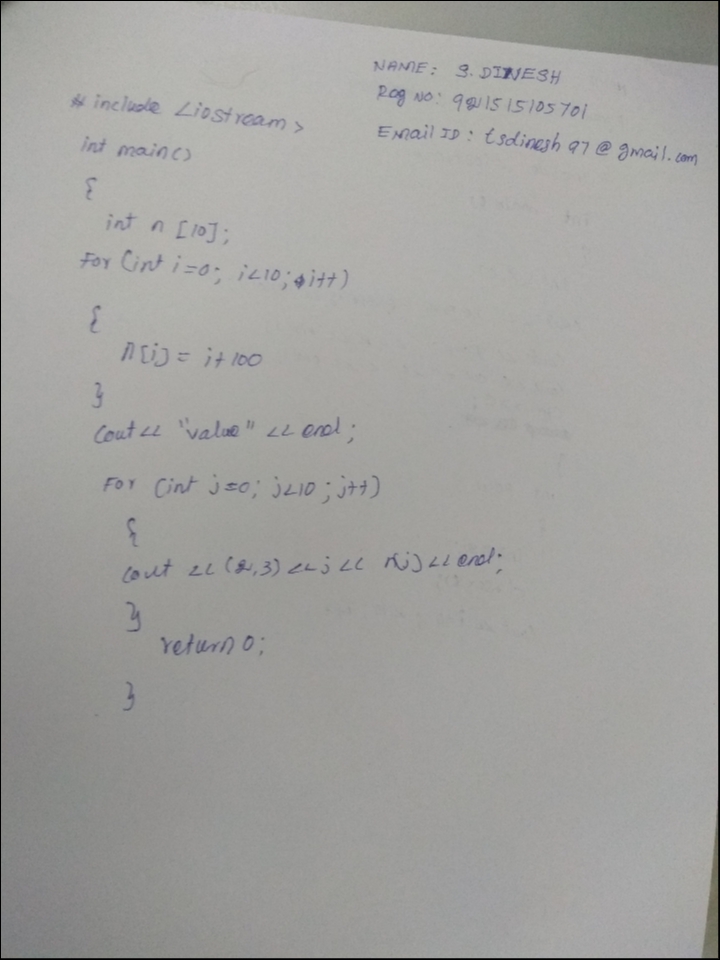 NAME: S. DINESH
Reg NO: 921515105701
Email ID: tsdinesh97@gmail.com
# include <iostream>
int main()
{
int n [10];
For (int i=0; i<10; i++)
{
n[i] = i+100
}
Cout << "value" << end;
For (int j=0; j<10; j++)
{
Cout << (2,3) << j << n[j] << end;
}
return 0;
}